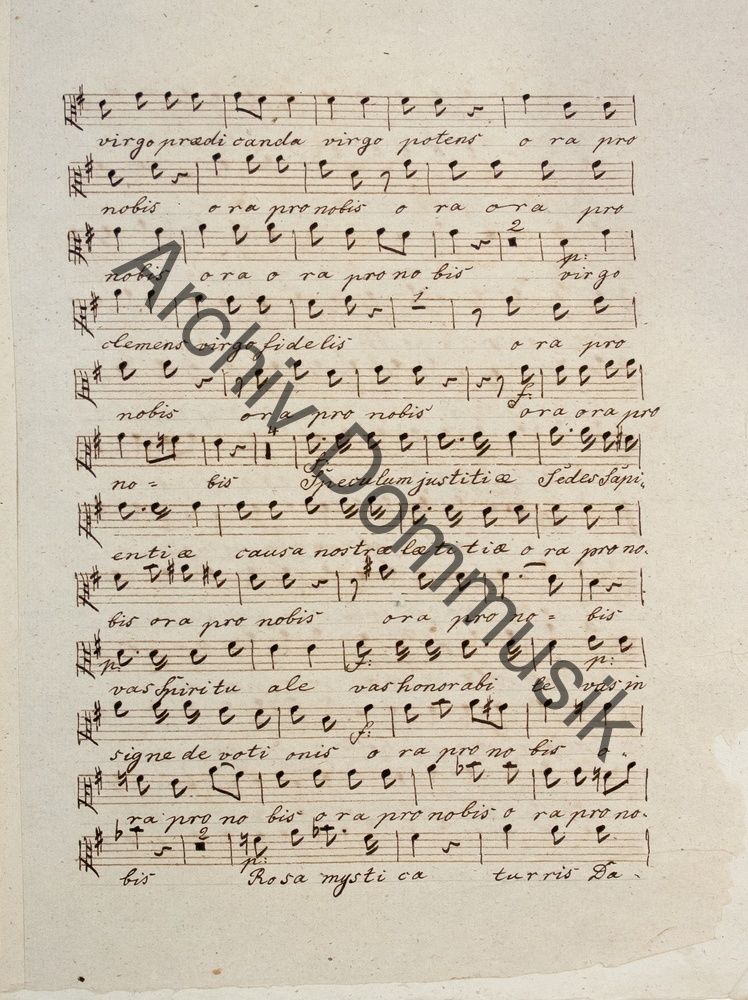 virgo prædi canda virgo potens o ra pro
nobis o ra pro nobis o ra o ra pro
2
nobis o ra o ra pro no bis p: virgo
1
clemens virgo fidelis o ra pro
f:
nobis ora pro nobis ora ora pro
4
no = bis Speculum justitiæ Sedes Sapi,
entiæ causa nostræ lætitiæ o ra pro no.
bis ora pro nobis ora pro no = bis
p: f: p:
vas Spiritu ale vas honorabi le vas in
f:
signe de voti onis o ra pro no bis o -
ra pro no bis o ra pro nobis o ra pro no.
2
p:
bis Rosa mysti ca turris Da -
Archiv Dommusik